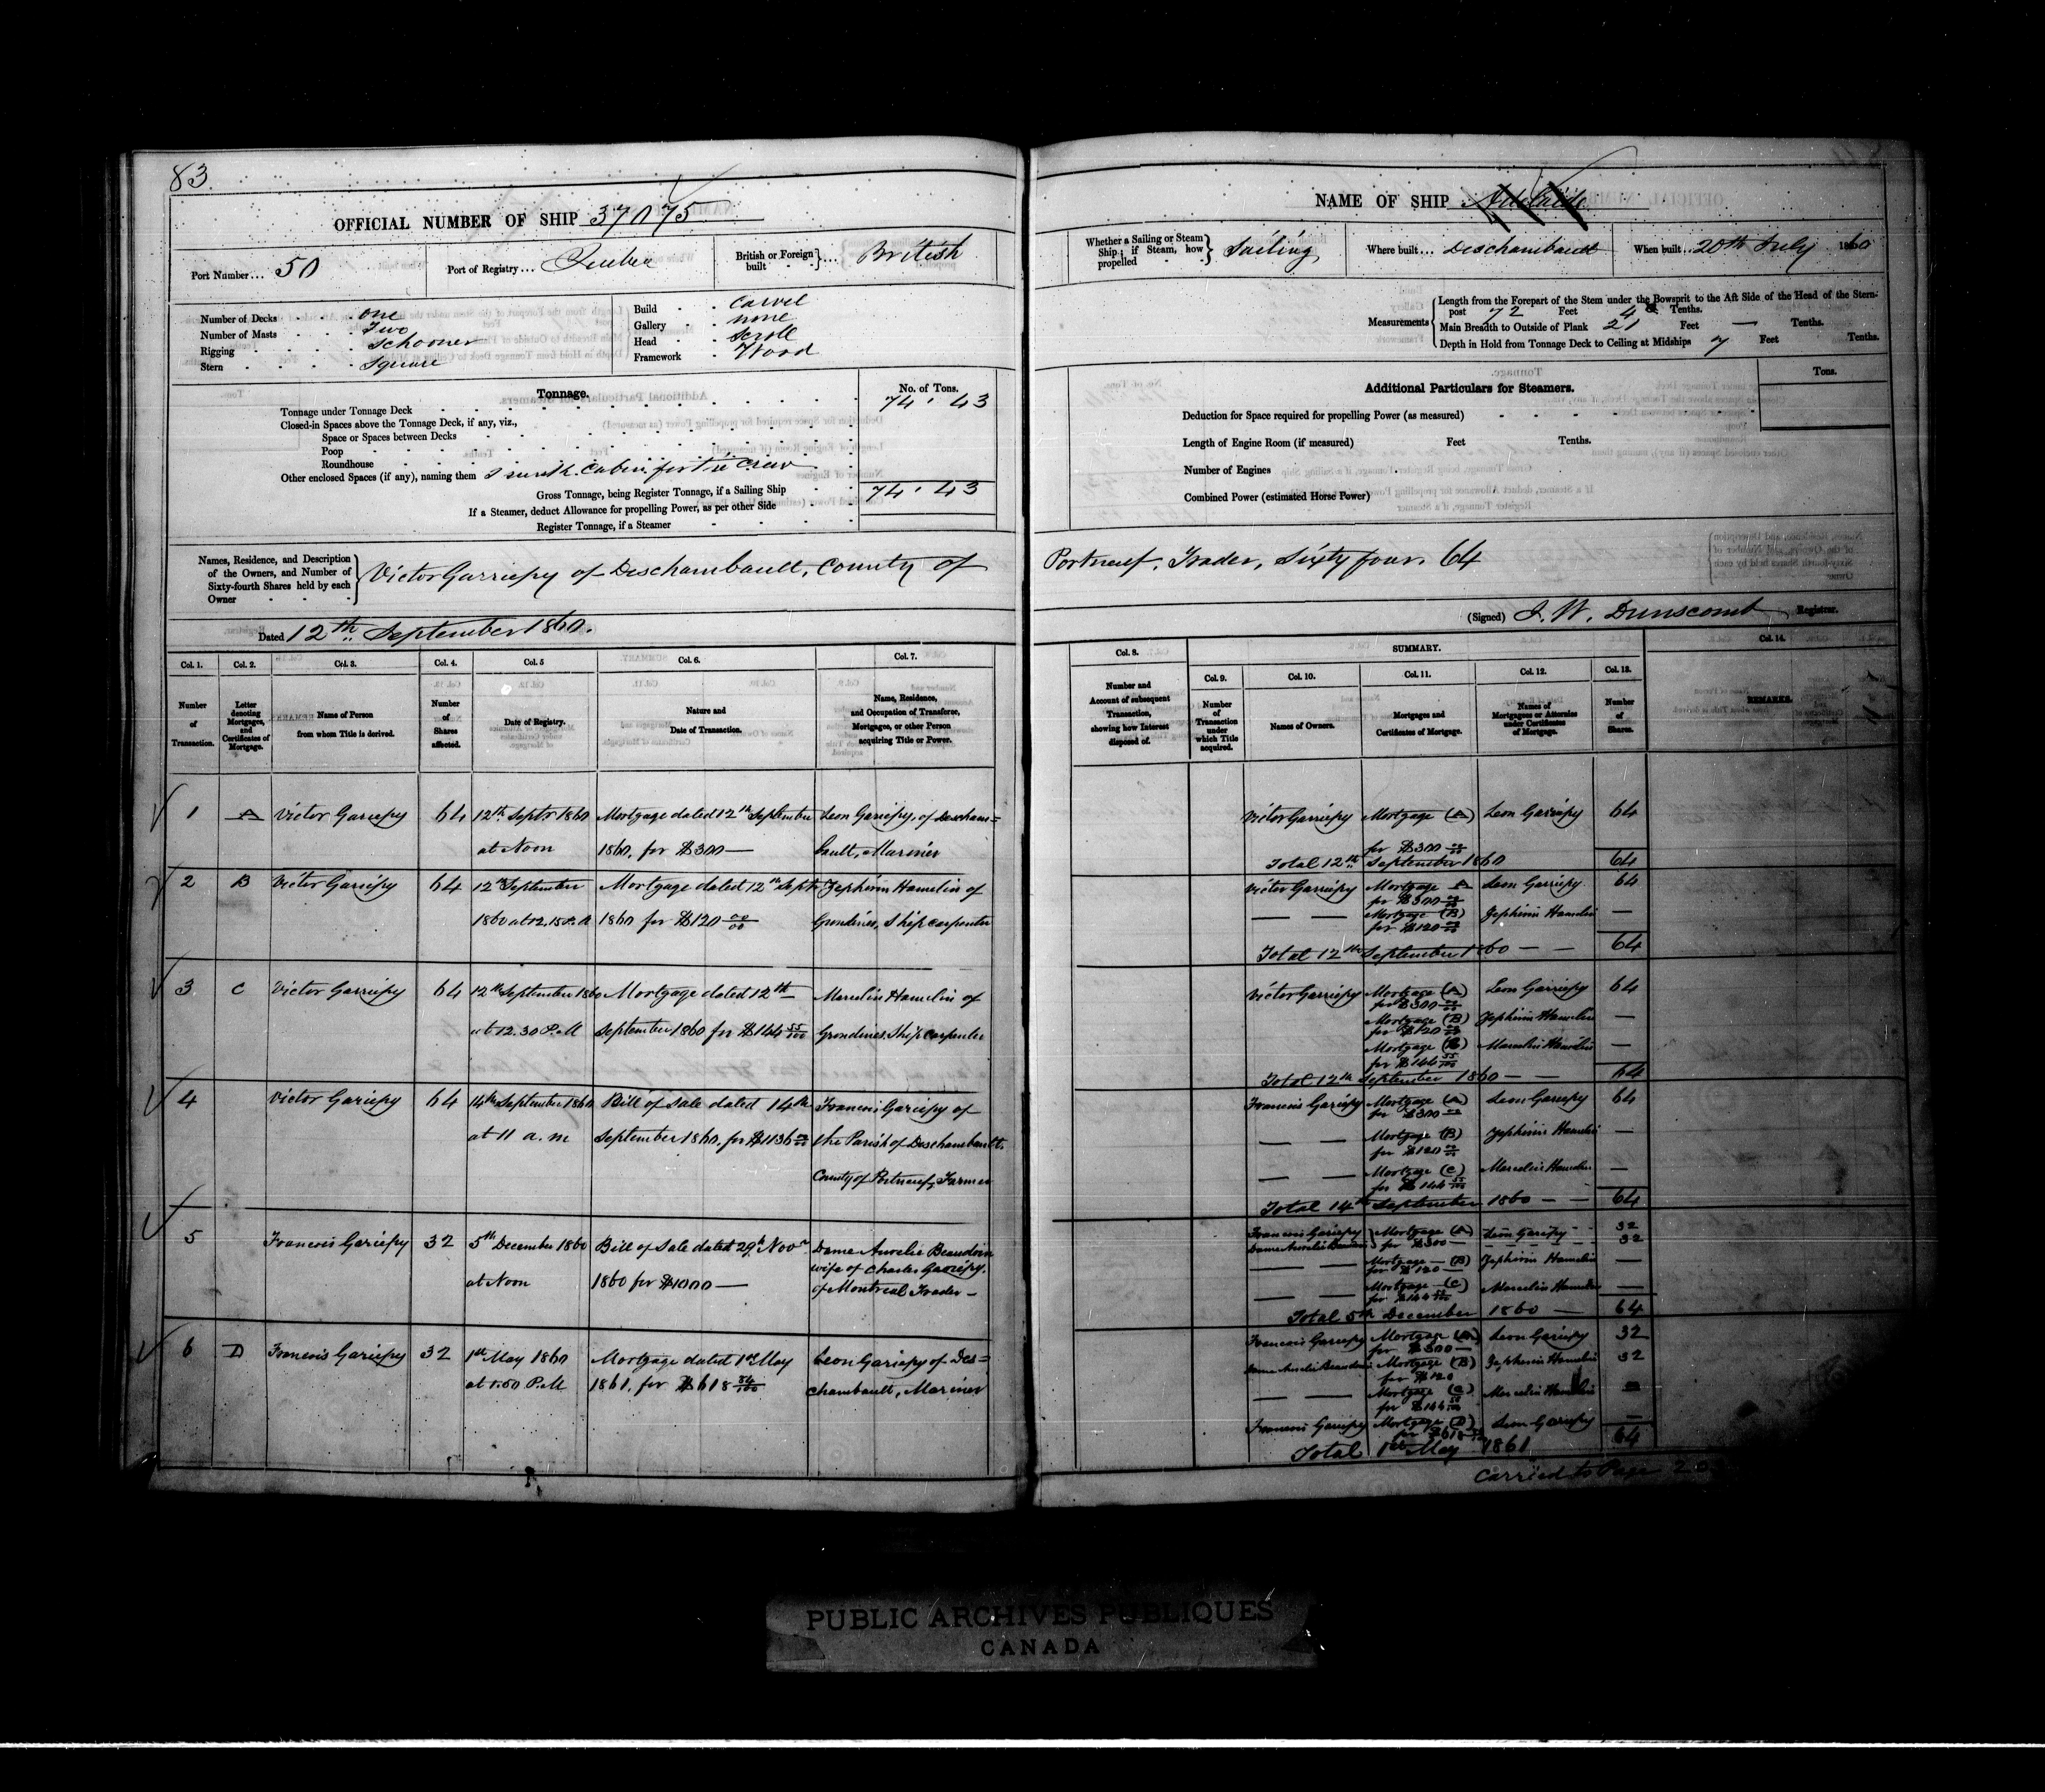 83.
OFFICIAL NUMBER OF SHIP 37075
Port Number... 50
Port of Registry... Quebec
British or Foreign built ... British
Number of Decks one
Number of Masts Two
Rigging Schooner
Stern Square
Build Carvel
Gallery none
Head Scroll
Framework Wood
Tonnage.
No. of Tons.
Tonnage under Tonnage Deck 74 . 43
Closed-in Spaces above the Tonnage Deck, if any, viz.,
Space or Spaces between Decks
Poop
Roundhouse
Other enclosed Spaces (if any), naming them cabin for the crew
Gross Tonnage, being Register Tonnage, if a Sailing Ship 74 . 43
If a Steamer, deduct Allowance for propelling Power, as per other Side
Register Tonnage, if a Steamer
Names, Residence, and Description of the Owners, and Number of Sixty-fourth Shares held by each Owner
Victor Garriepy of Deschambault, County of
Dated 12th September 1860.
Col. 1. Col. 2. Col. 3. Col. 4. Col. 5 Col. 6. Col. 7.
Number of Transaction.
Letter denoting Mortgages, and Certificates of Mortgage.
Name of Person from whom Title is derived.
Number of Shares affected.
Date of Registry.
Nature and Date of Transaction.
Name, Residence, and Occupation of Transferee, Mortgagee, or other Person acquiring Title or Power.
1 A Victor Gariepy 64 12th Septr 1860 Mortgage dated 12th September Leon Gariepy, of Descham=
at Noon 1860, for $300 — bault, Mariner
2 B Victor Gariepy 64 12th September Mortgage dated 12th Septr Zephirin Hamelin of
1860 at 12.15 P.M 1860 for $120 00/00 Grondines, Ship carpenter
3 C Victor Garriepy 64 12th September 1860 Mortgage dated 12th Marcelin Hamelin of
at 12.30 P.M September 1860 for $144 55/100 Grondines, Ship carpenter
4 Victor Gariepy 64 14th September 1860 Bill of Sale dated 14th Francois Gariepy of
at 11 a.m September 1860, for $1136 00/00 the Parish of Deschambault,
County of Portneuf, Farmer
5 Francois Gariepy 32 5th December 1860 Bill of Sale dated 29th Novr Dame Aurelie Beaudoin
at Noon 1860 for $1000 — wife of Charles Gariepy,
of Montreal Trader —
6 D Francois Gariepy 32 1st May 1860 Mortgage dated 1st May Leon Gariepy of Des=
at 1.50 P.M 1861, for $618 84/100 chambault, Mariner
NAME OF SHIP Adelaide
Whether a Sailing or Steam Ship; if Steam, how propelled Sailing
Where built... Deschambault
When built... 20th July 1860
Measurements
Length from the Forepart of the Stem under the Bowsprit to the Aft Side of the Head of the Stern-
post 72 Feet 4 Tenths.
Main Breadth to Outside of Plank 21 Feet — Tenths.
Depth in Hold from Tonnage Deck to Ceiling at Midships 7 Feet Tenths.
Additional Particulars for Steamers.
Tons.
Deduction for Space required for propelling Power (as measured)
Length of Engine Room (if measured) Feet Tenths.
Number of Engines
Combined Power (estimated Horse Power)
Portneuf, Trader, Sixty four. 64
(Signed) J. W. Dunscomb Registrar.
Col. 8. SUMMARY. Col. 14.
Col. 9. Col. 10. Col. 11. Col. 12. Col. 13.
Number and Account of subsequent Transaction, showing how Interest disposed of.
Number of Transaction under which Title acquired.
Names of Owners.
Mortgages and Certificates of Mortgage.
Names of Mortgagees or Attornies under Certificates of Mortgage.
Number of Shares.
REMARKS.
Victor Garriepy Mortgage (A) Leon Gariepy 64
for $300 00/00
Total 12th September 1860 64
Victor Garriepy Mortgage A Leon Garriepy 64
for $300 00/00
— — Mortgage (B) Zephirin Hamelin —
for $120 00/00
Total 12th September 1860 — — 64
Victor Garriepy Mortgage (A) Leon Garriepy 64
for $300 00/00
Mortgage (B) Zephirin Hamelin —
for $120 00/00
Mortgage (C) Marcelin Hamelin —
for $144 55/100
Total 12th September 1860 — — 64
Francois Gariepy Mortgage (A) Leon Garriepy 64
for $300 —
— — Mortgage (B) Zephirin Hamelin —
for $120 00/00
— — Mortgage (C) Marcelin Hamelin —
for $144 55/100
Total 14th September 1860 — — 64
Francois Gariepy Mortgage (A) Leon Gariepy 32
Dame Aurelie Beaudoin for $300 — 32
— — Mortgage — (B) Zephirin Hamelin —
for $120 —
— — Mortgage — (C) Marcelin Hamelin —
for $144 55/100
Total 5th December 1860 — 64
Francois Gariepy Mortgage (A) Leon Gariepy 32
for $300 —
Dame Aurelie Beaudoin Mortgage (B) Zephirin Hamelin 32
for $120
— — Mortgage (C) Marcelin Hamelin —
for $144 55/100
Francois Gariepy Mortgage (D) Leon Gariepy —
for $618
Total 1st May 1861 64
Carried to Page
PUBLIC ARCHIVES PUBLIQUES
CANADA